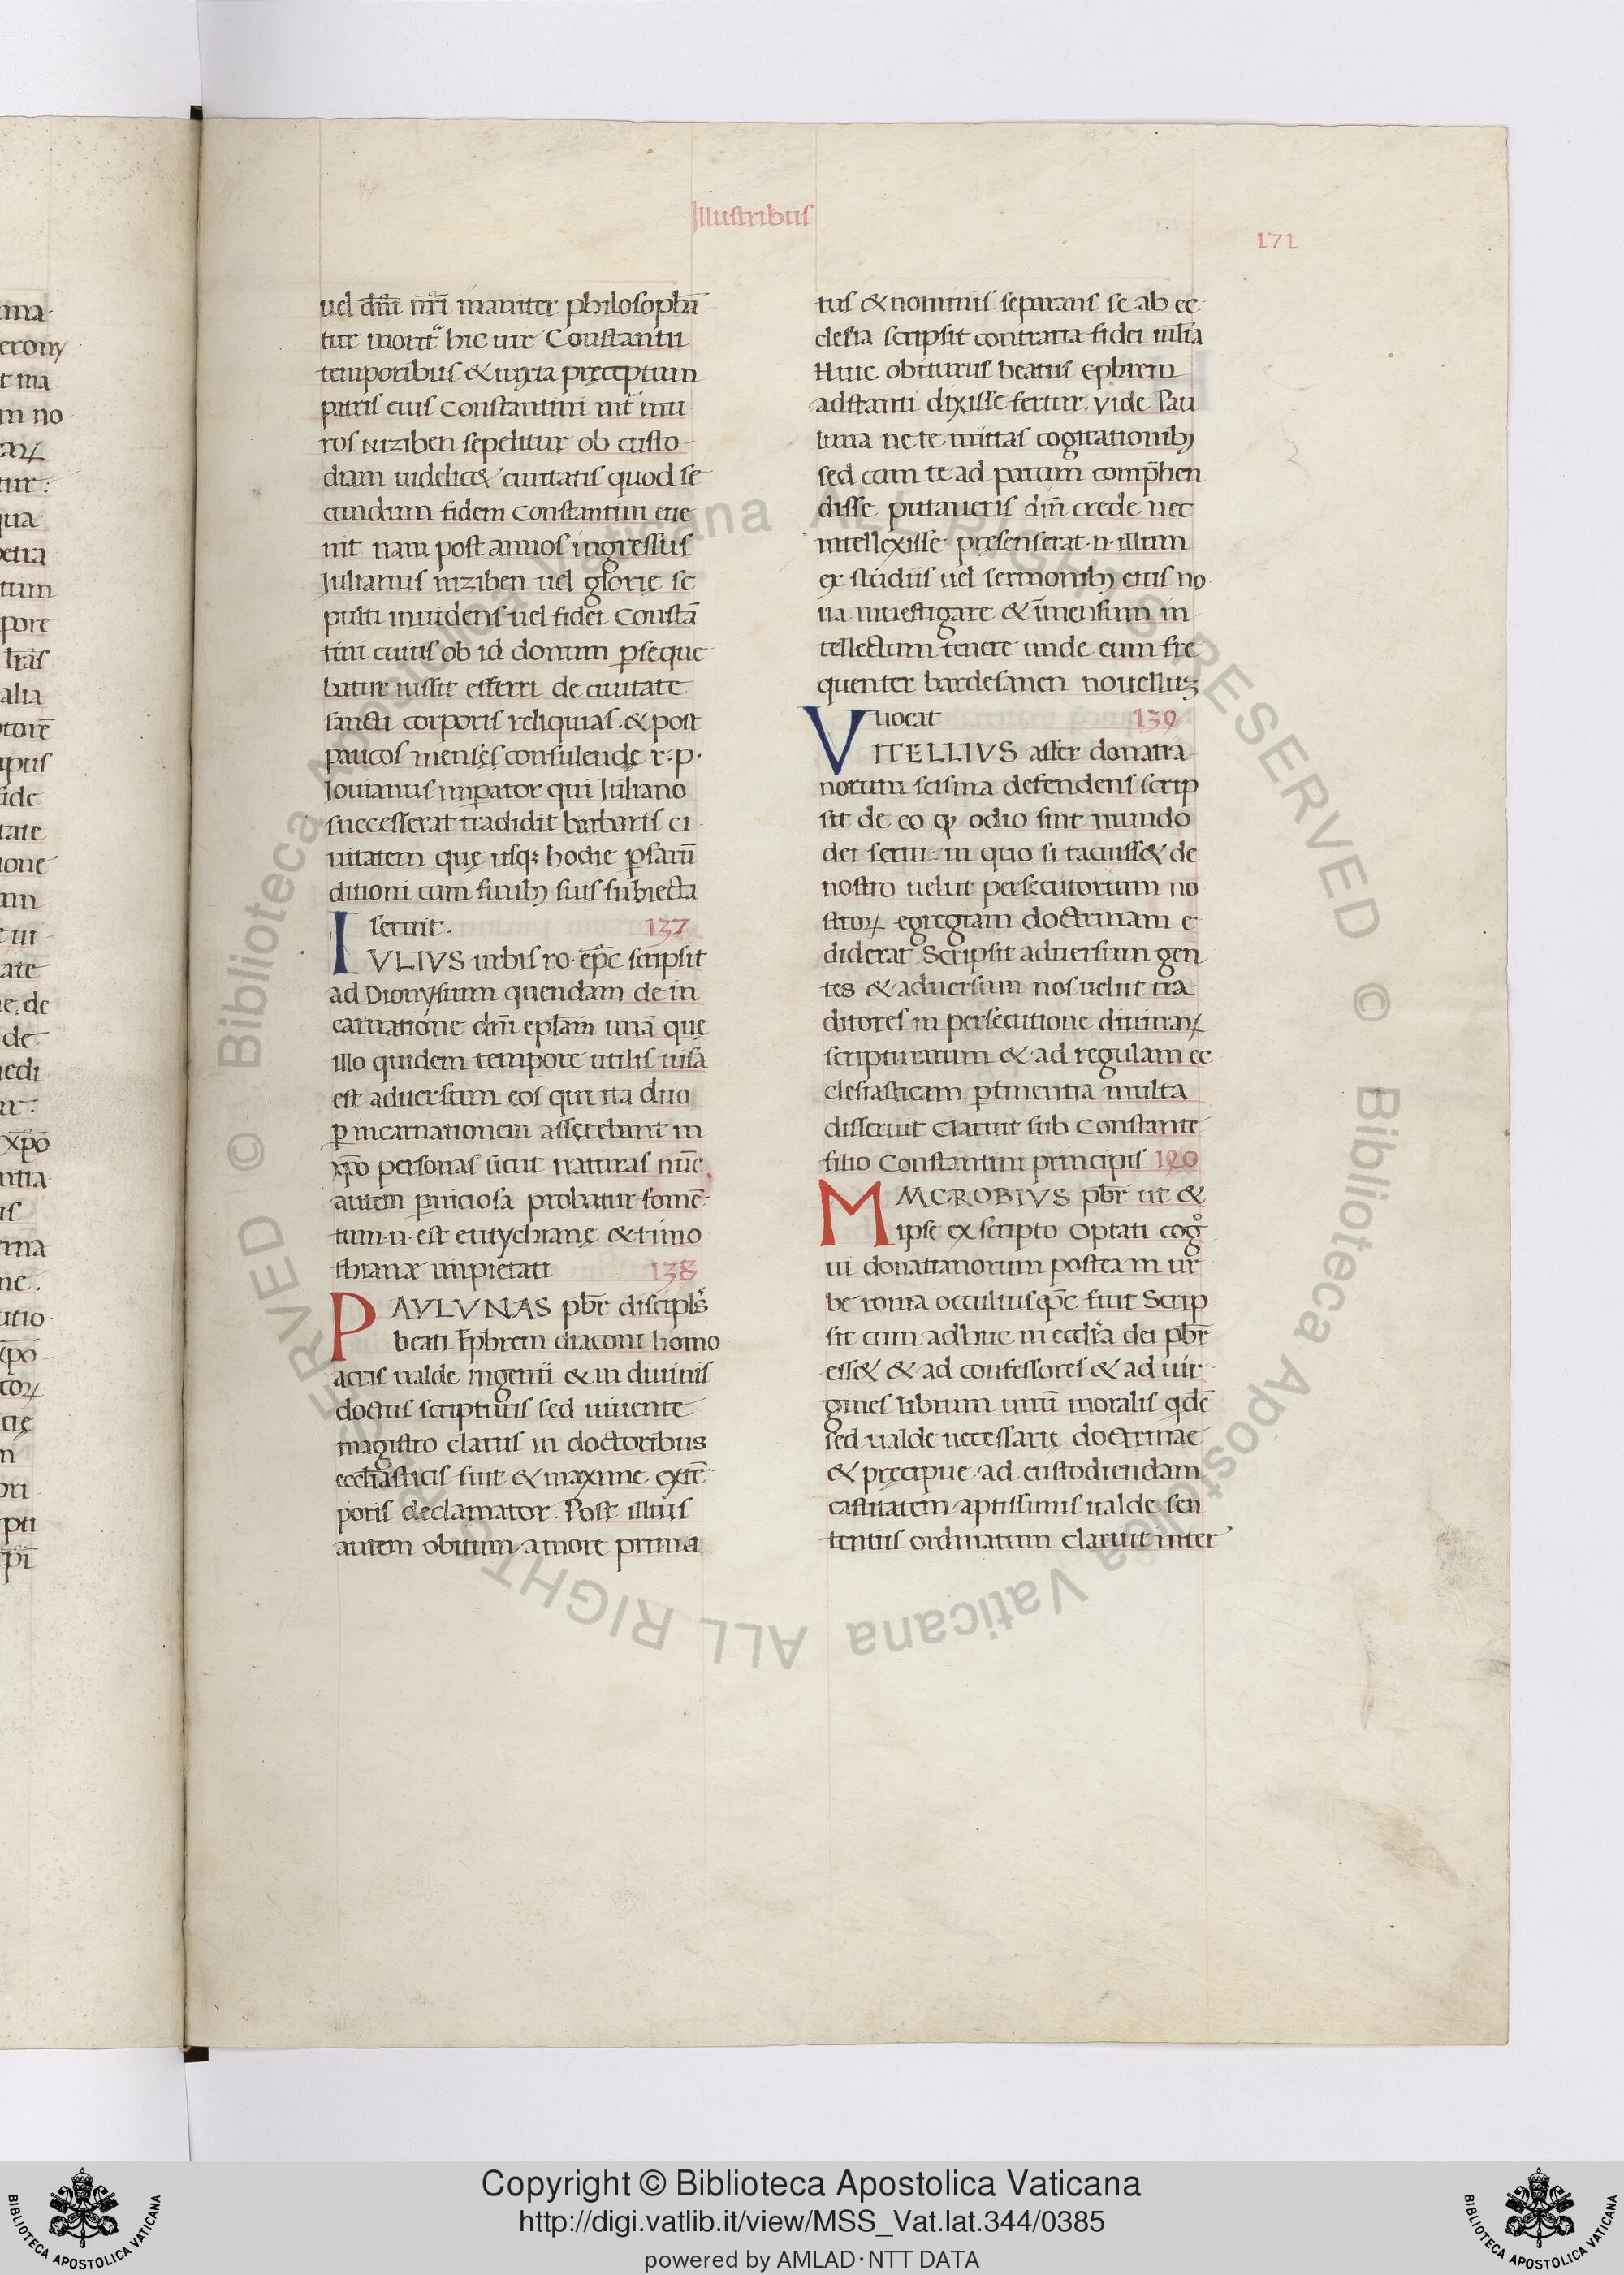 Illustribus
171
uel dm̄ nr̄i inaniter philosopha
tur morit̄ hic uir Constantii
temporibus & iuxta pręceptum
patris eius Constantini int̄ mu
ros niziben sepelitur ob custo
diam uidelic& ciuitatis quod se
cundum fidem Constantini eue
nit nam post annos ingressus
Iulianus niziben uel glorię se
pulti inuidens uel fidei Constā
tini cuius ob id domum p̱seque
batur iussit efferri de ciuitate
sancti corporis reliquias. & post
paucos menses consulendę r. p.
Iouianus imp̱ator qui Iuliano
successerat tradidit barbaris ci
uitatem quę usq; hodie p̱sarū
ditioni cum finibꝫ suis subiecta
seruit. 137
IVLIVS urbis ro. ep̄c scripsit
ad Dionysium quendam de in
carnatione dn̄i eplam unā quę
illo quidem tempore utilis uisa
est aduersum eos qui ita duo
p̱ incarnationem asserebant in
xp̄o personas sicut naturas nūc
autem p̱niciosa probatur fomē
tum .n. est eutychianę & timo
thianæ impietati 138
PAVLVNAS pbr̄ discipls̄
beati Ephrem diaconi homo
acris ualde ingenii & in diuinis
doctus scripturis sed uiuente
magistro clarus in doctoribus
eccl̄iasticis fuit & maxime extē
poris declamator. Post illius
autem obitum amore prima
tus & nominis separans se ab ec
clesia scripsit contraria fidei ml̄ta
Huic obiturus beatus Ephrem
adstanti dixisse fertur. Vide Pau
luna ne te mittas cogitationibꝫ
sed cum te ad purum comp̄hen
disse putaueris dm̄ crede nec
intellexisse presenserat .n. illum
ex studiis uel sermonibꝫ eius no
ua inuestigare & īmensum in
tellectum tenere unde eum fre
quenter bardesanen nouelluꝫ
uocat 139
VITELLIVS affer donatia
norum scisma defendens scrip
sit de eo ꝙ odio sint mundo
dei serui. in quo si tacuiss& de
nostro uelut persecutorum no
stroꝝ egregiam doctrinam e
diderat Scripsit aduersum gen
tes & aduersum nos uelut tra
ditores in persecutione diuinaꝝ
scripturarum & ad regulam ec
clesiasticam p̱tinentia multa
disseruit claruit sub Constante
filio Constantini principis 140
MACROBIVS pbr̄ ut &
ipse ex scripto Optati cog°
ui donatianorum postea in ur
be roma occultus ep̄c fuit Scrip
sit cum adhuc in eccl̄ia dei pbr̄
ess& & ad confessores & ad uir
gines librum unū moralis qdē
sed ualde necessarię doctrinae
& pręcipue ad custodiendam
castitatem aptissimis ualde sen
tentiis ordinatum claruit inter
Copyright © Biblioteca Apostolica Vaticana
http://digi.vatlib.it/view/MSS_Vat.lat.344/0385
powered by AMLAD·NTT DATA